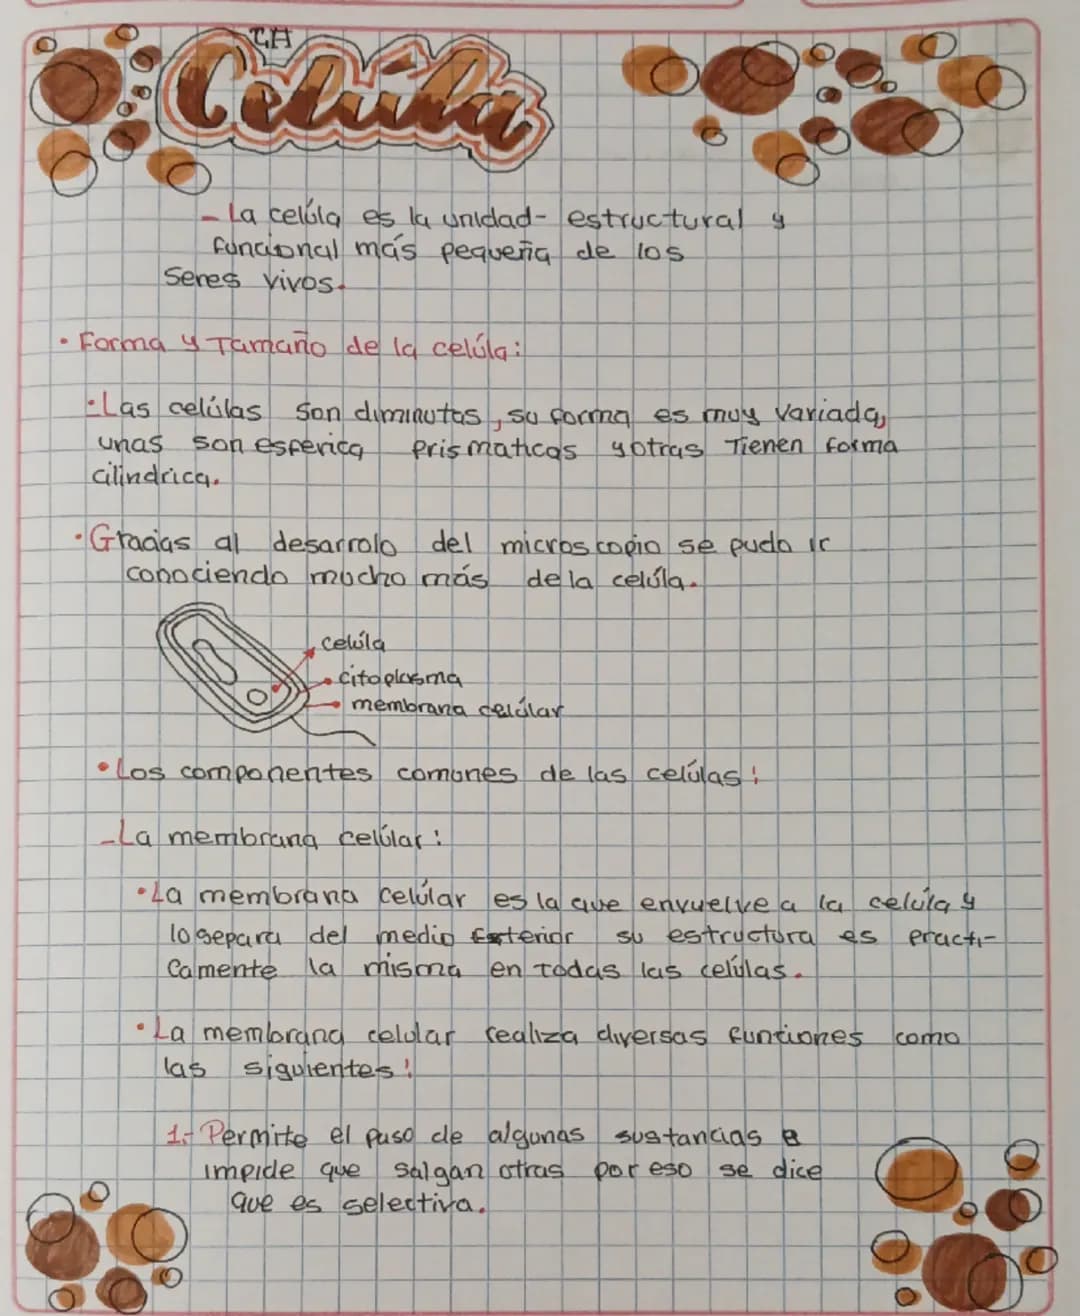 LA
Celúla
- La celúla es la unidad- estructural y
funcional más pequeña de los
seres vivos.
• Forma y Tamaño de la celúla:
• Las celúlas son diminutas, su forma es muy variada,
unas son esferica prismaticas y otras Tienen forma
cilindrica.
• Gracias al desarrolo del microscopio se pudo ir
conociendo mucho más de la celúla.
celúla
citoplasma
membrana celúlar
• Los componentes comunes de las celúlas:
- La membrana celúlar:
• La membrana celúlar es la que envuelve a la celúla y
lo separa del medio Exterior su estructura es practi-
camente la misma en todas las celúlas.
• La membrana celular realiza diversas funciones como
las siguientes:
1.- Permite el paso de algunas sustancias e
impide que salgan otras por eso se dice
que es selectiva.